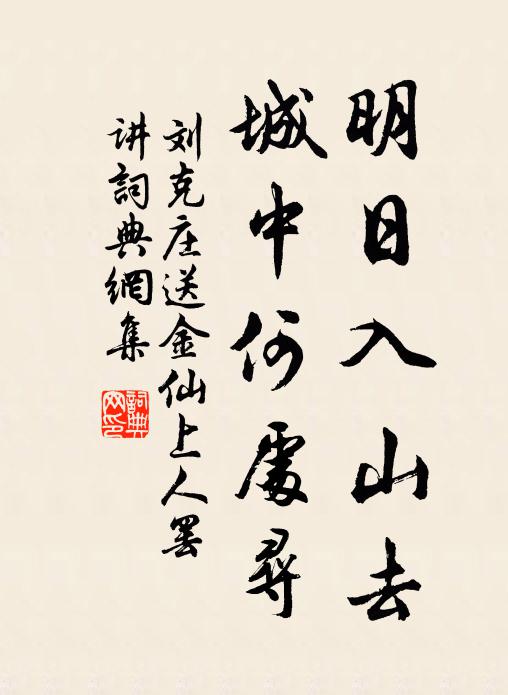 明日入山去
城中何處尋
刘克庄送金仙上人罢
讲詞典網集
詞典
网印